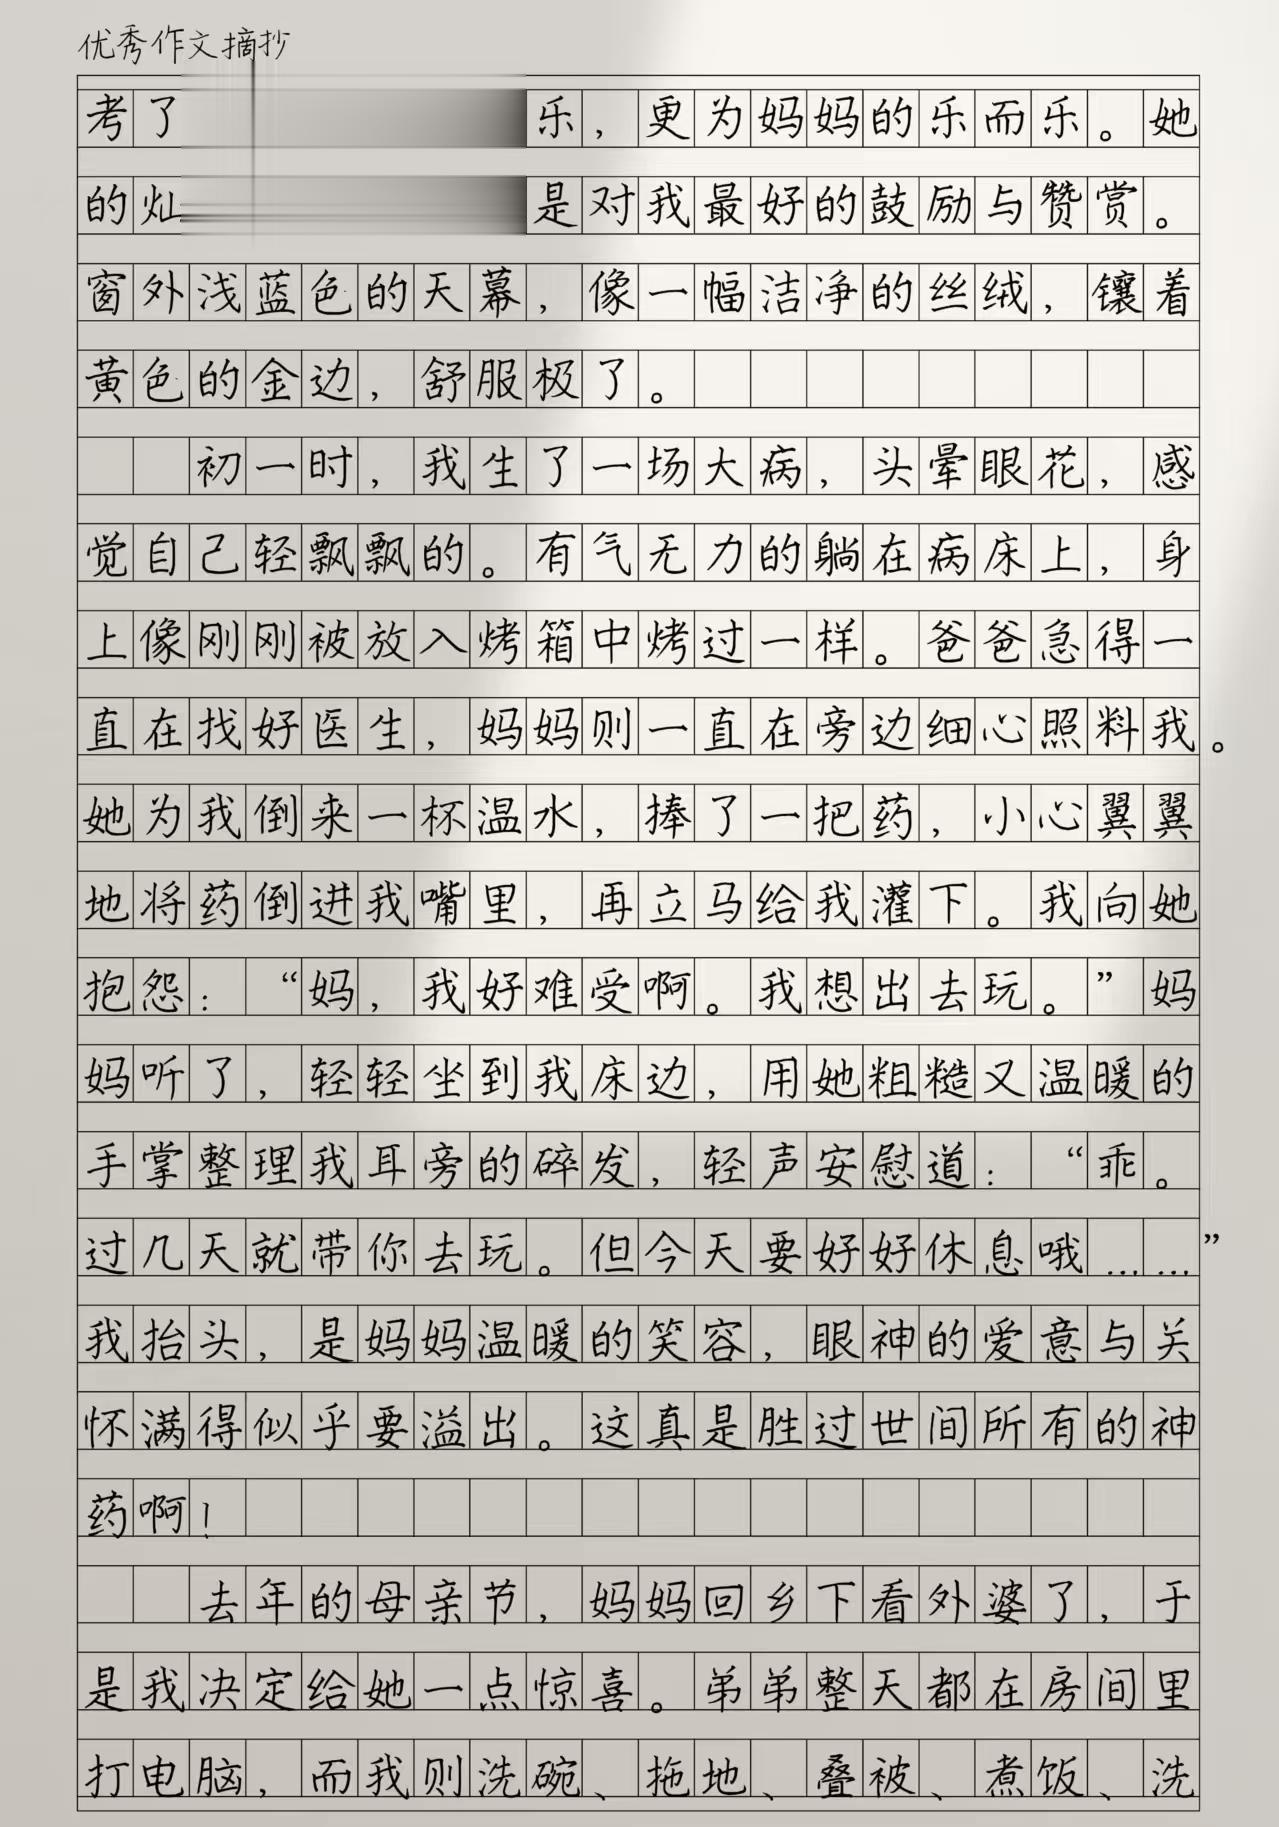 优秀作文摘抄
考了 乐，更为妈妈的乐而乐。她
的灿 是对我最好的鼓励与赞赏。
窗外浅蓝色的天幕，像一幅洁净的丝绒，镶着
黄色的金边，舒服极了。
初一时，我生了一场大病，头晕眼花，感
觉自己轻飘飘的。有气无力的躺在病床上，身
上像刚刚被放入烤箱中烤过一样。爸爸急得一
直在找好医生，妈妈则一直在旁边细心照料我。
她为我倒来一杯温水，捧了一把药，小心翼翼
地将药倒进我嘴里，再立马给我灌下。我向她
抱怨：“妈，我好难受啊。我想出去玩。”妈
妈听了，轻轻坐到我床边，用她粗糙又温暖的
手掌整理我耳旁的碎发，轻声安慰道：“乖。
过几天就带你去玩。但今天要好好休息哦……”
我抬头，是妈妈温暖的笑容，眼神的爱意与关
怀满得似乎要溢出。这真是胜过世间所有的神
药啊！
去年的母亲节，妈妈回乡下看外婆了，于
是我决定给她一点惊喜。弟弟整天都在房间里
打电脑，而我则洗碗、拖地、叠被、煮饭、洗